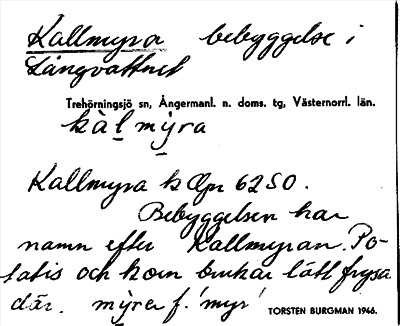 Kallmyra bebyggelse i
Långvattnet
Trehörningsjö sn, Ångermanl. n. doms. tg, Västernorrl. län.
kàl mỳra
Kallmyra k Öpr 6250.
Bebyggelsen har
namn efter Kallmyran. Po-
tatis och korn brukar lätt frysa
där. mỳra f. 'myr'
TORSTEN BURGMAN 1946.